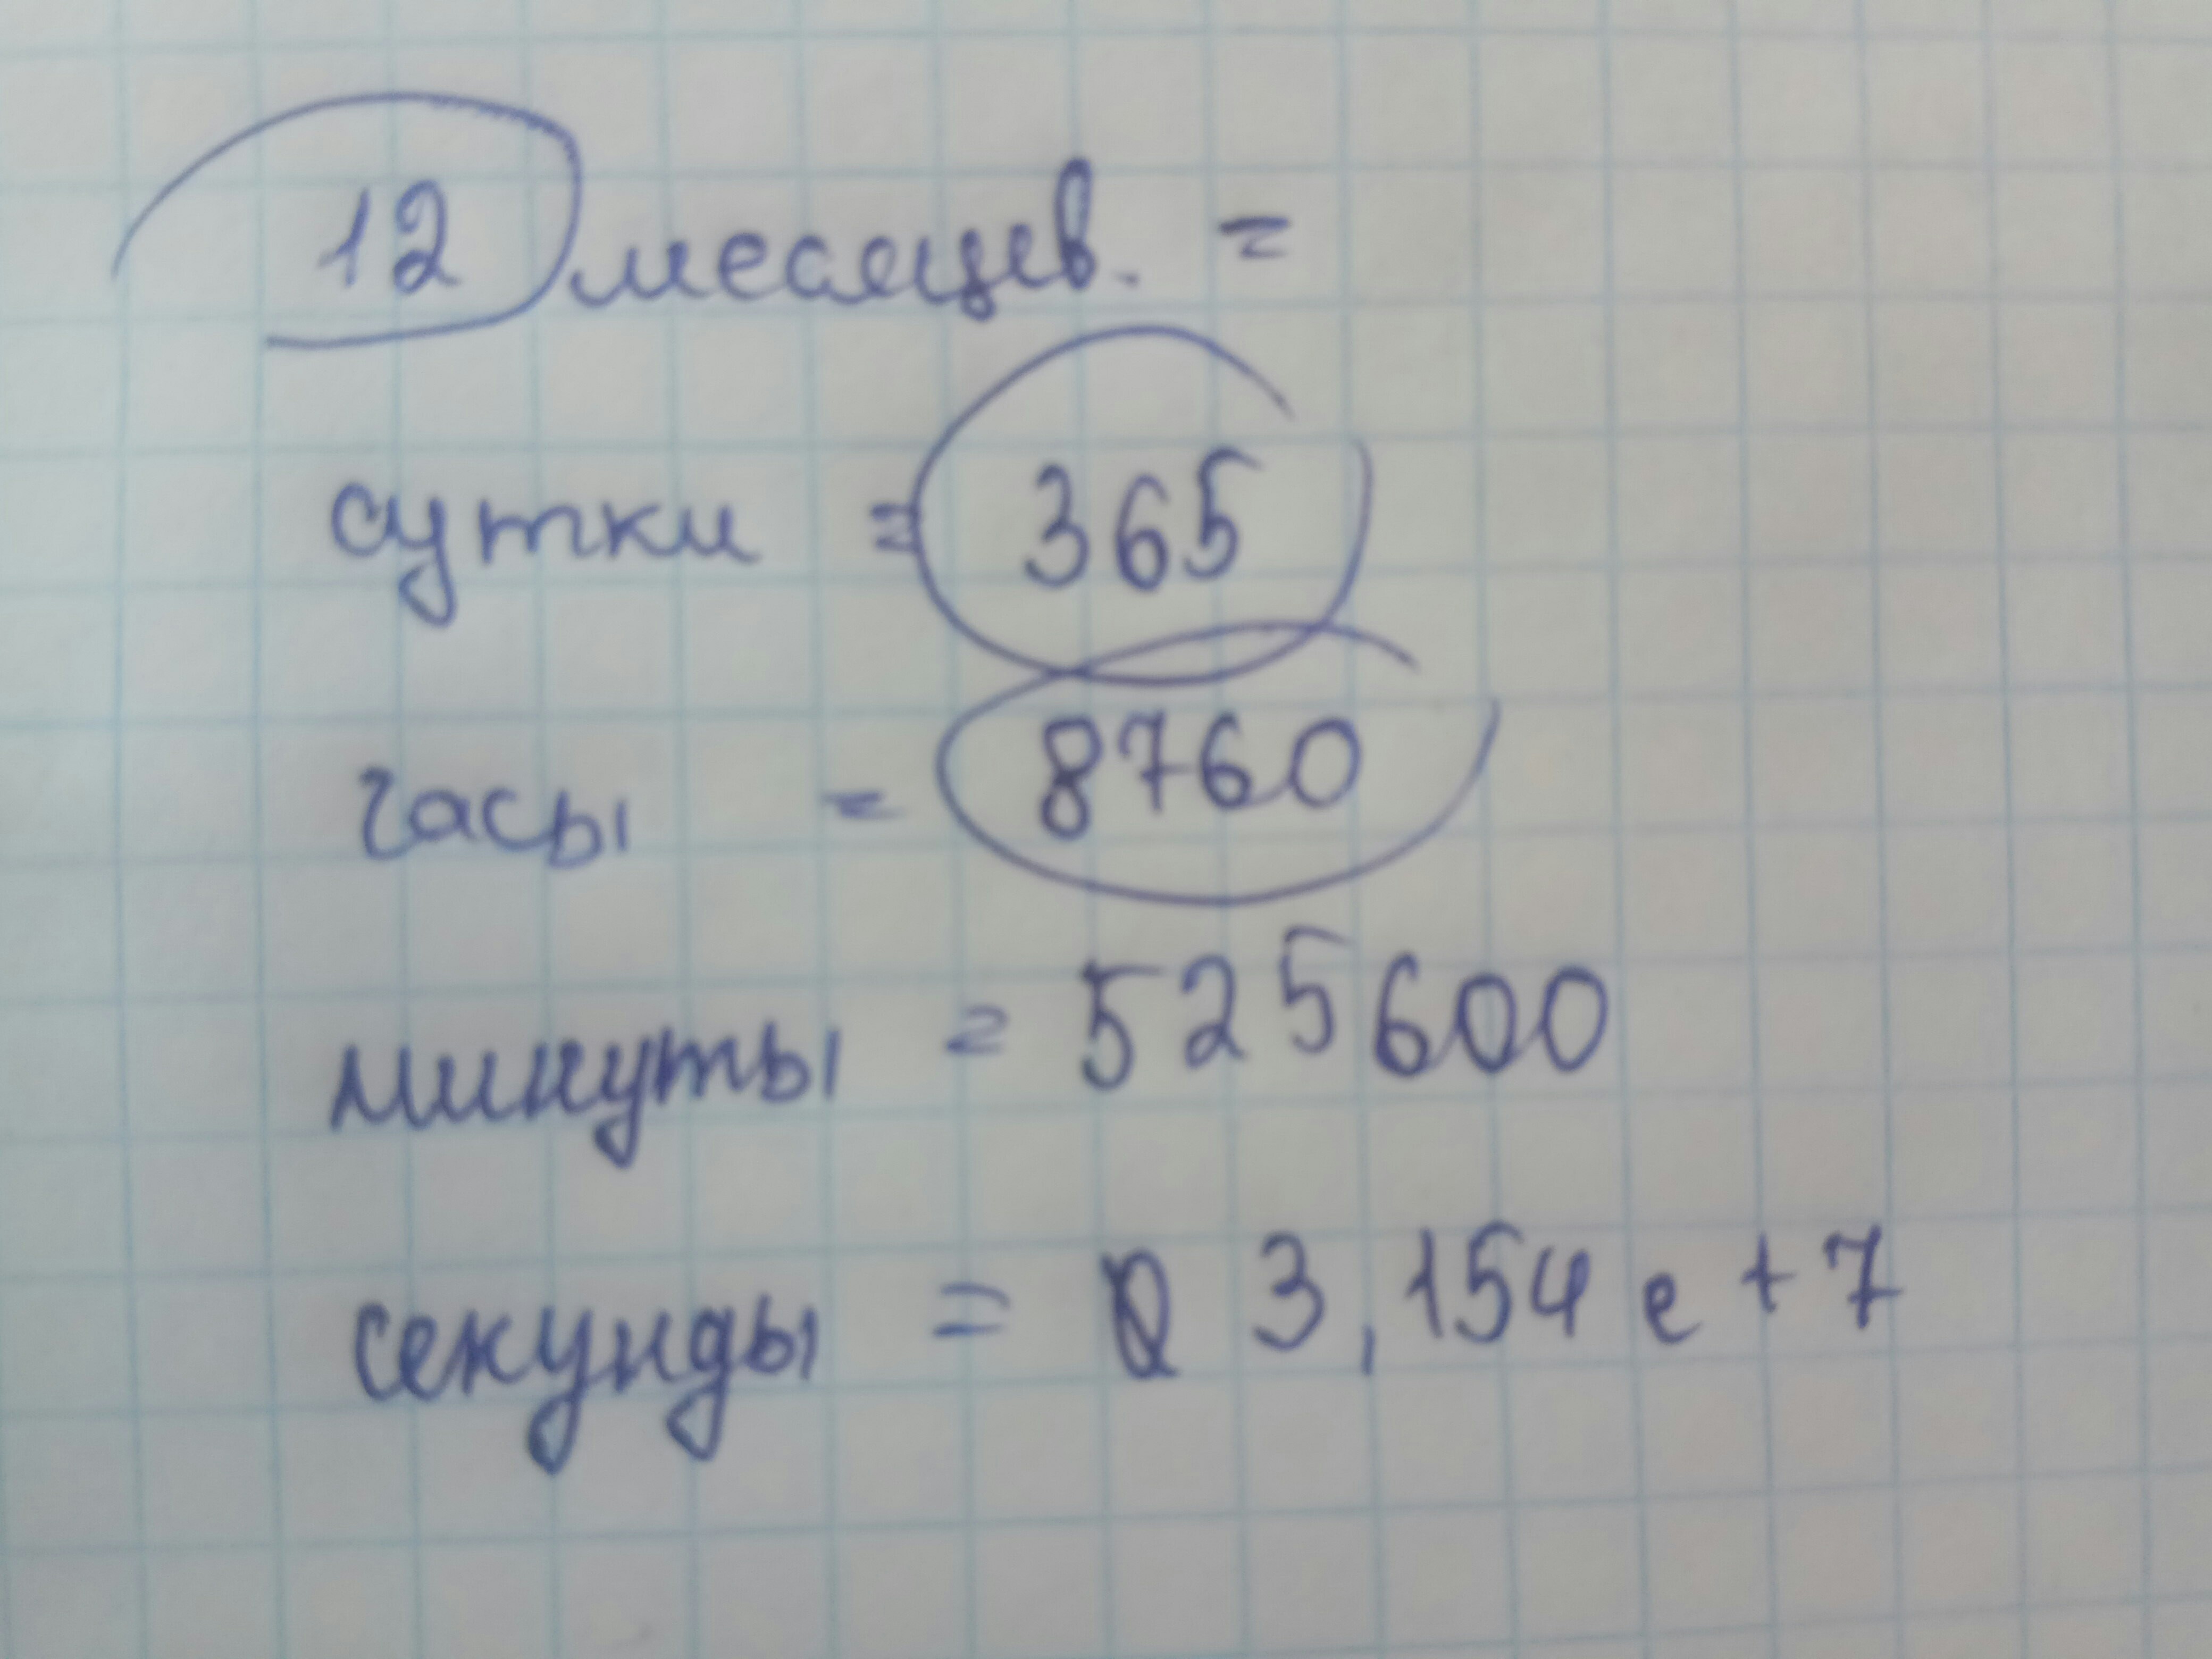 12 месяцев. =
сутки = 365
часы = 8760
минуты = 525600
секунды = 3,154 e + 7